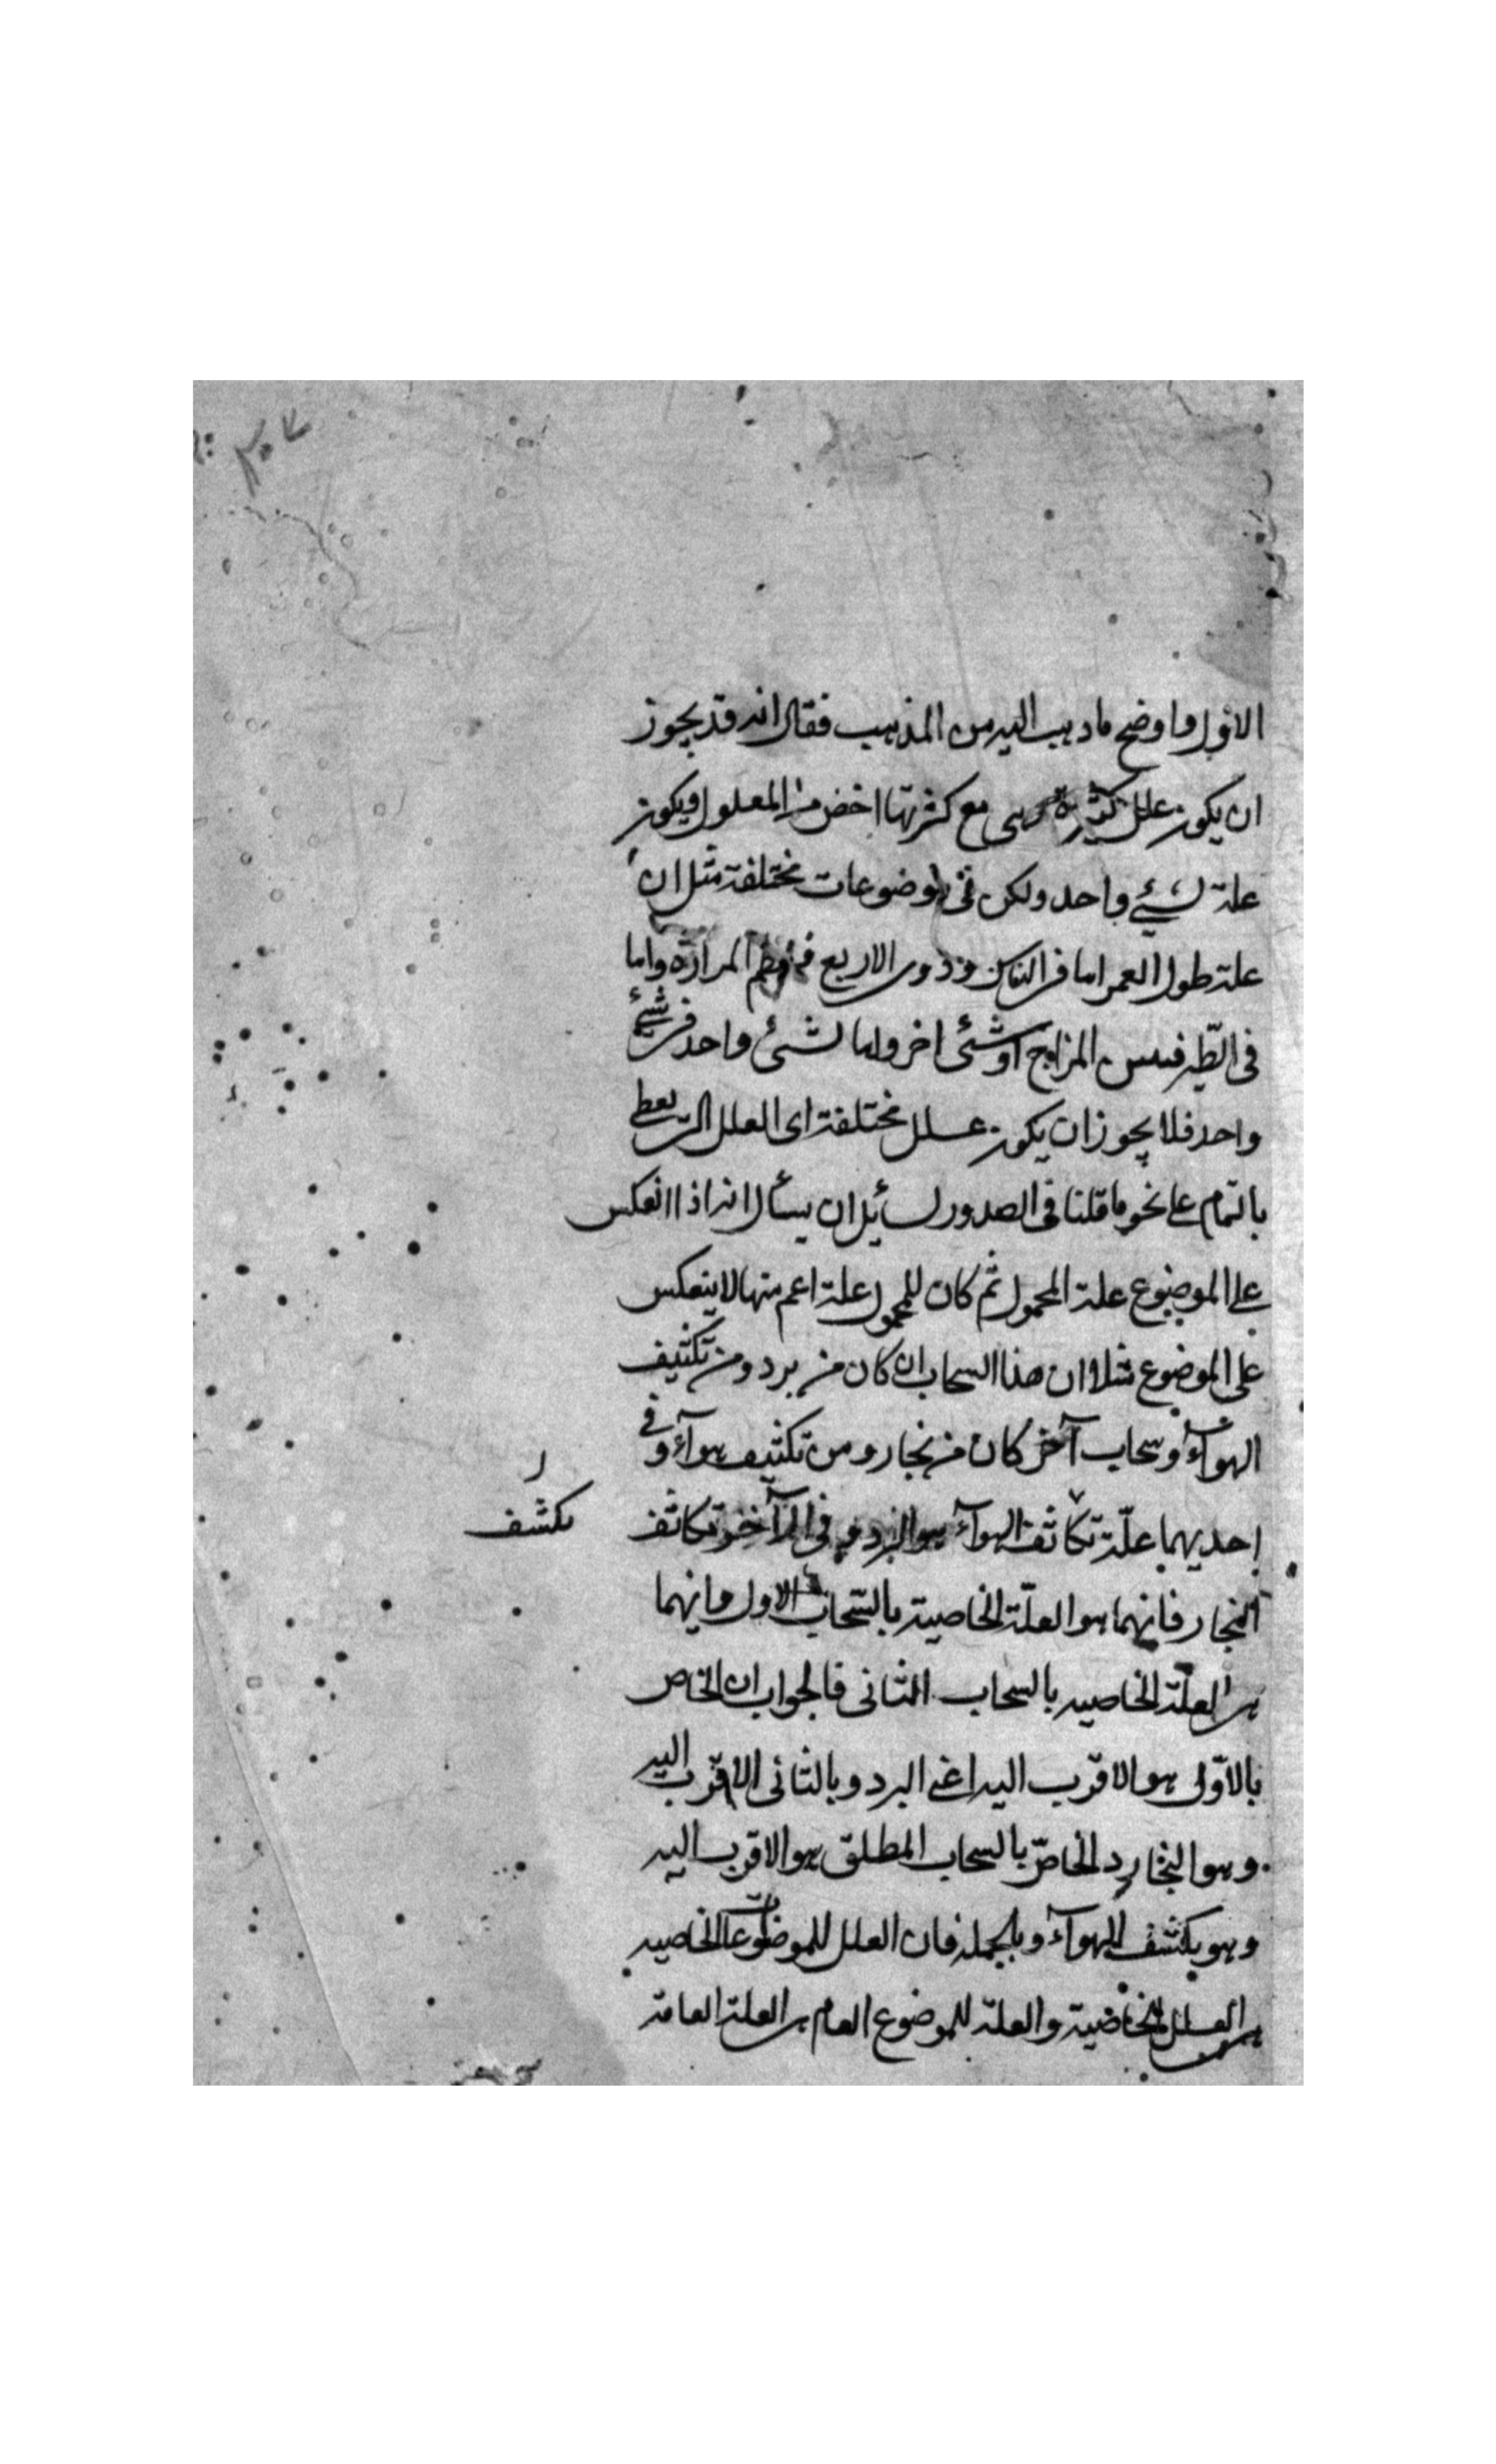 ٣٠٧
الاول واوضح ما دهب اليه من المذهب فقال انه قد يجوز
ان يكون علل كثيرة هى مع كثرتها اخص من المعلول ويكون
علة لشىء واحد ولكن فى موضوعات مختلفة مثل ان
علة طول العمر اما فى الناس وذوى الاربع المرارة واما
فى الطّير فيبس المزاج او شىء اخر واما لشىء واحد فى شىء
واحد فلا يجوز ان يكون علل مختلفة اى العلل التى يعطى
بالتمام على نحو ما قلنا فى الصدور لسائل ان يسأل انه اذا انعكس
على الموضوع علة المحمول ثم كان للمحمول علة اعم منها لا ينعكس
على الموضوع مثلا ان هذا السحاب ان كان من برد ومن تكثيف
الهواء وسحاب آخر كان من بخار ومن تكثيف هواء وفى
احديهما علّة تكاثف الهوآء هو البرد وفى الآخر تكاثف
تكشف
البخار فانهما هو العلّة الخاصية بالسّحاب الاول وانهما
هى العلّة الخاصيه بالسحاب الثانى فالجواب ان الخاص
بالاوّل هو الاقرب اليه اعنى البرد وبالثانى الاقرب اليه
وهو البخار د الخاصّ بالسحاب المطلق هو الاقرب اليه
وهو يكشف الهوآء وبالجمله فان العلل للموضوعات الخاصيه
هى العلل الخاصية والعلة للموضوع العام هى العلة العامة